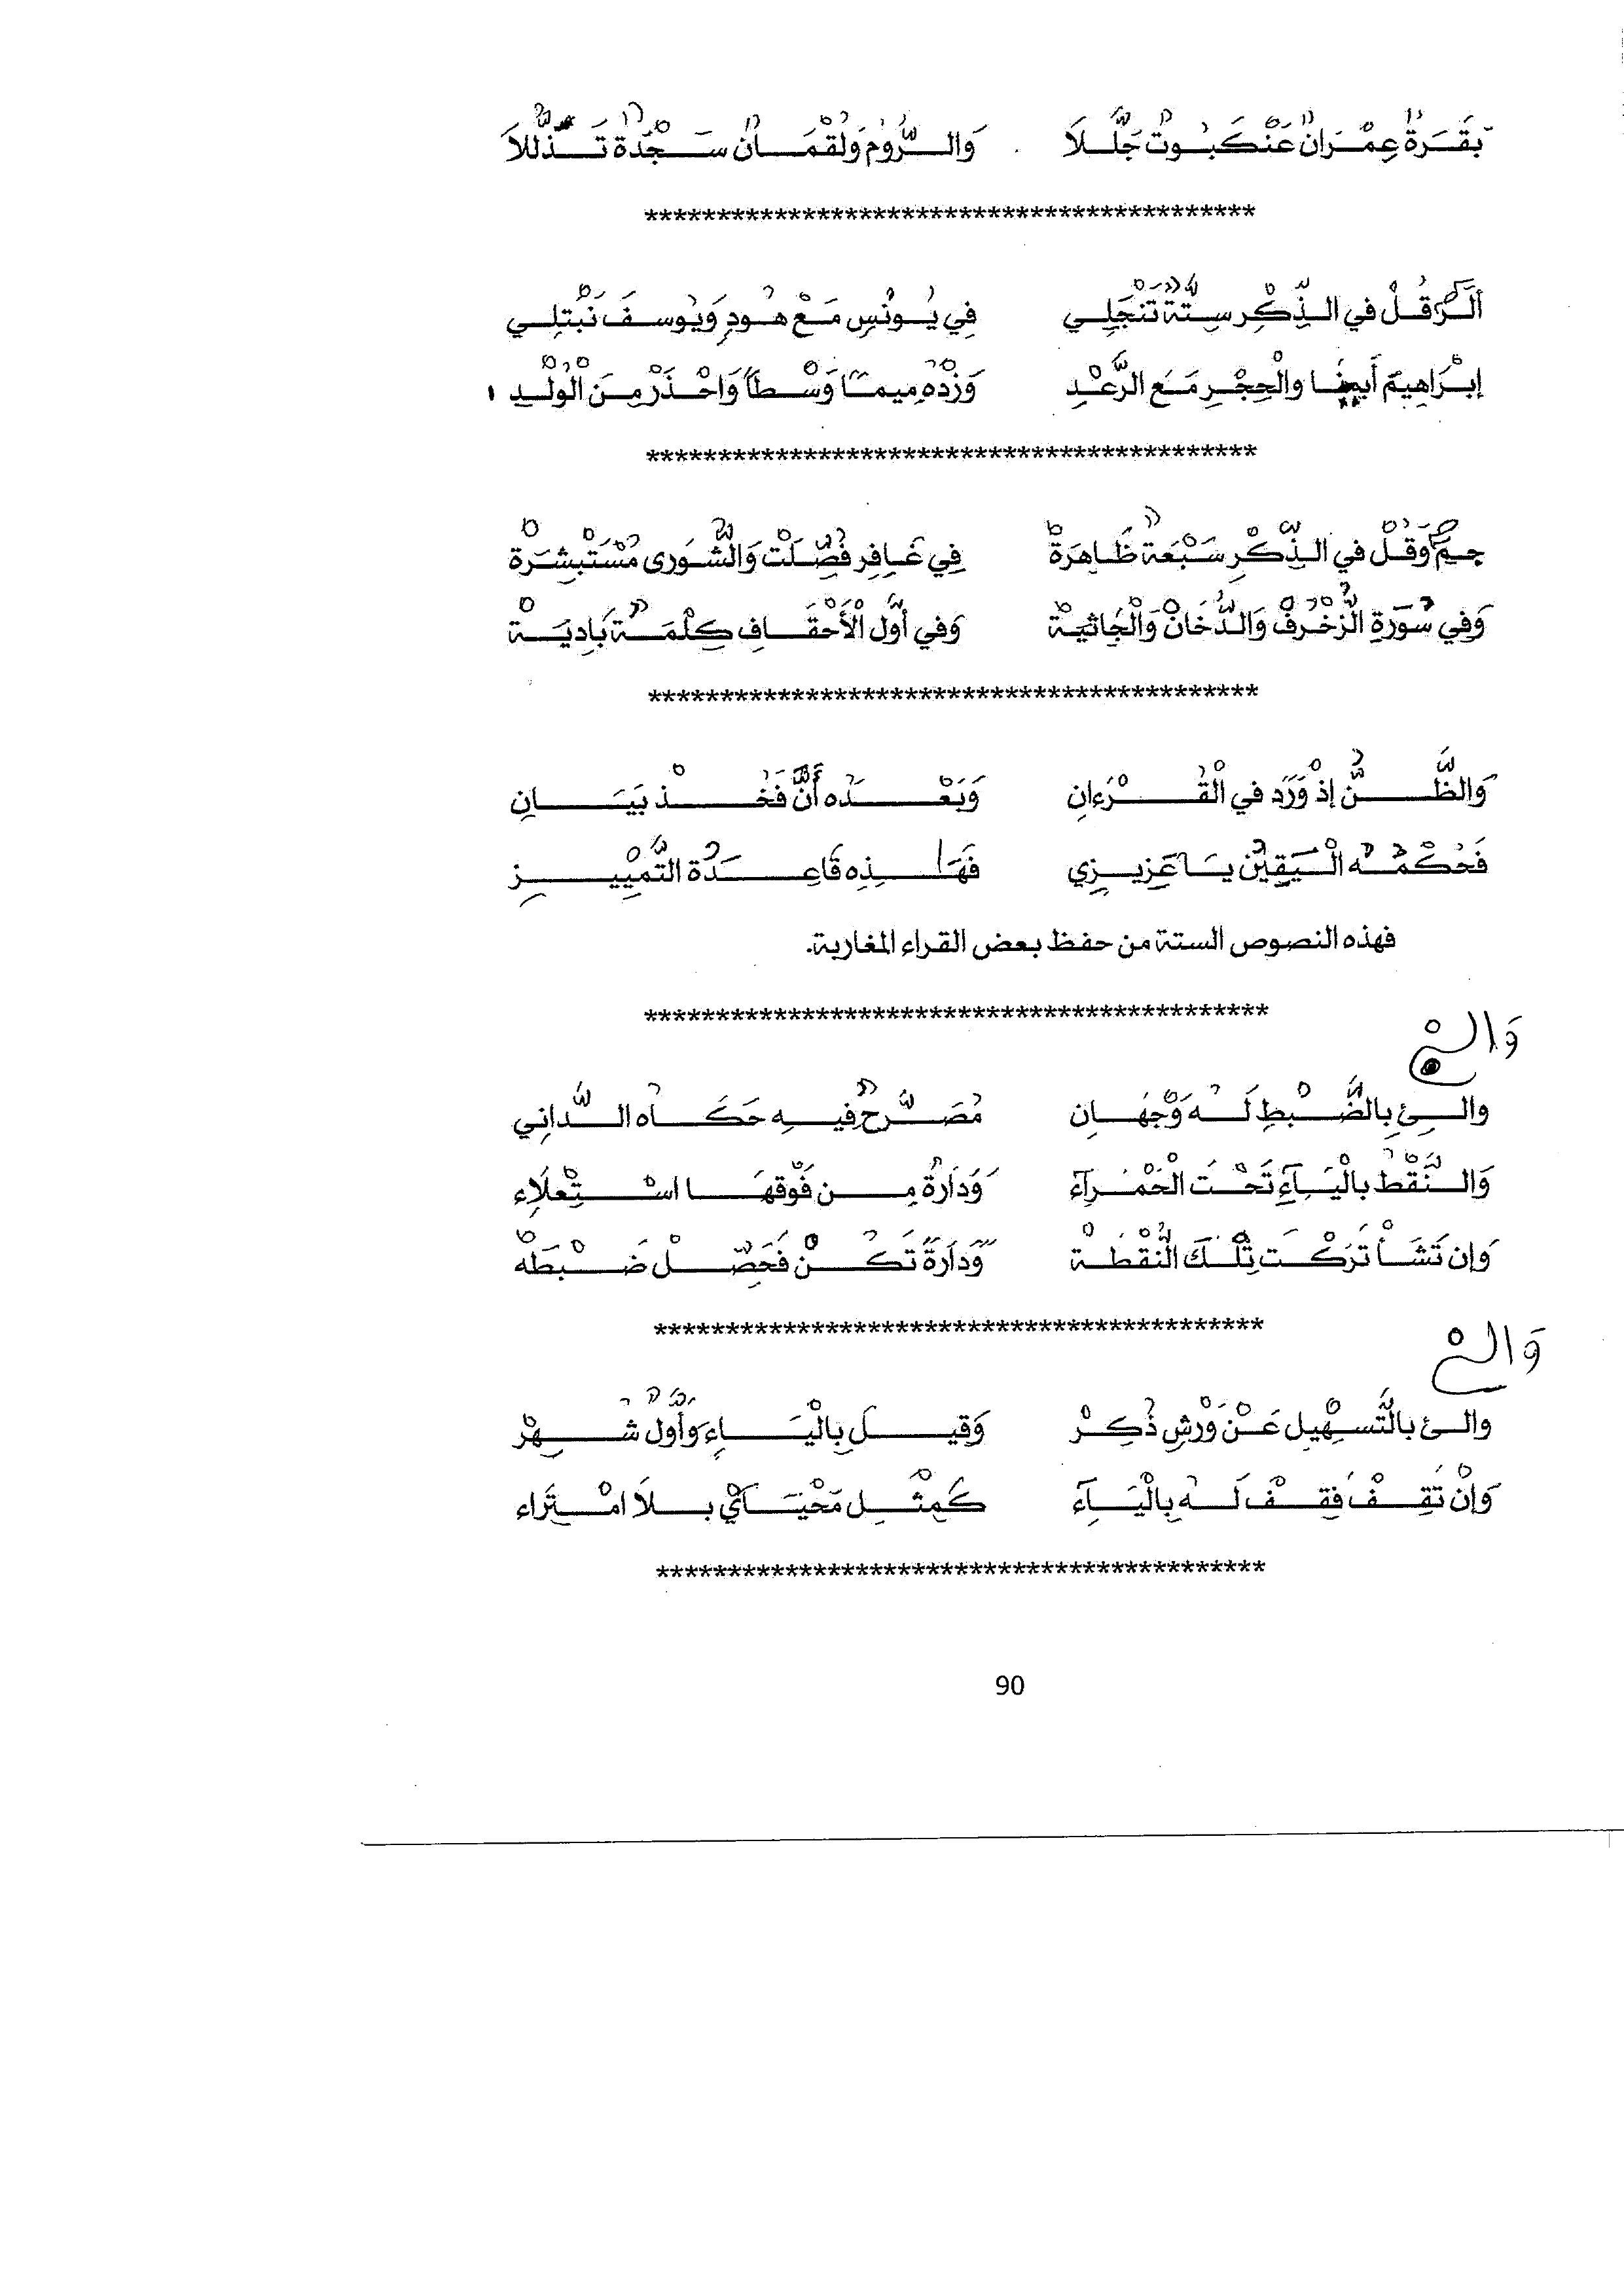 بَقَرَةُ عِمْرَانُ عَنْكَبُوتُ جَلَّلَا وَالرُّومُ وَلُقْمَانُ سَجْدَة تَذَلُّلَا
******************************************
أَلَرَ قُلْ فِي الذِّكْرِ سِتَّة تَنجَلِي فِي يُونُسٍ مَعْ هُودِ وَيُوسُفَ نَبْتَلِي
إِبْرَاهِيمَ أَيضًا والْحِجْرِ مَعَ الرَّعْدِ وَزِدْهُ مِيماً وَسْطاً وَاحْذَرْ مِنَ الْوَلَدِ
******************************************
حمَ وَقُلْ فِي الذِّكْرِ سَبْعَة ظَاهِرَةْ فِي غَافِرِ فُصِّلَتْ وَالشُّورى مُسْتَبْشِرَةْ
وَفِي سُورَةِ الزُّخْرُفْ وَالدُّخَانْ وَالْجَاثِيَةْ وَفِي أَوَّلِ الْأَحْقَافِ كِلْمَةٌ بَادِيَةْ
******************************************
وَالظَّنُّ إِذْ وَرَدَ فِي الْقُرْءَانِ وَبَعْدَهُ أَنَّ فَخُذْ بَيَانِ
فَحُكْمُهُ الْيَقِينُ يَا عَزِيزِي فَهَاذِهِ قَاعِدَةُ التَّمْيِيزِ
فهذه النصوص الستة من حفظ بعض القراء المغاربة.
******************************************
وَالۓْ
والئِ بِالضَّبْطِ لَهُ وَجْهَانِ مُصَرَّحٌ فِيهِ حَكَاهُ الدَّانِي
وَالنَّقْطُ بِالْيَآءِ تَحْتَ الْحَمْرَآءِ وَدَارَةٌ مِن فَوْقِهَا اسْتِعْلَاءِ
وَإِن تَشَأْ تَرَكْتَ تِلْكَ النُّقْطَةْ وَدَارَةً تَكُنْ فَحَصِّلْ ضَبْطَهْ
******************************************
وَالۓْ
والئ بِالتَّسْهِيلِ عَنْ وَرْشٍ ذُكِرْ وَقِيلَ بِالْيَاءِ وَأَوَّلٌ شُهِرْ
وَإِنْ تَقِفْ فَقِفْ لَهُ بِالْيَآءِ كَمِثْلِ مَحْيَآيْ بِلَا امْتِرَاء
******************************************
90